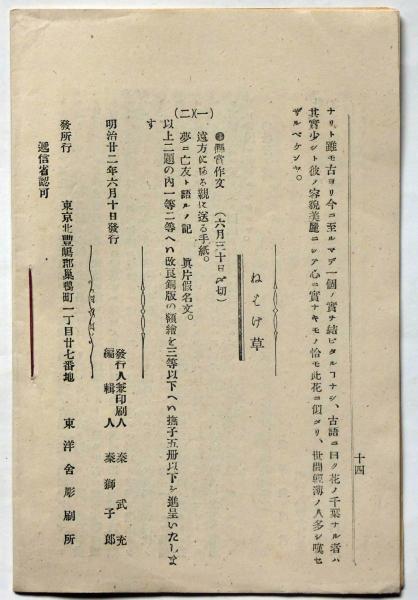 十四
ナリト雖モ古ヨリ今ニ至ルマデ一個ノ實ヲ結ビタルヿナシ、古語ニ曰ク花ノ千葉ナル者ハ
其實少シト彼ノ容貌美麗ニシテ心ニ實ナキモノ恰モ此花ニ似タリ、世間輕薄ノ人多シ嘆セ
ザルベケンヤ。
ねむけ草
懸賞作文 (六月三十日〆切)
(一) 遠方にゐる親に送る手紙。
(二) 夢ニ亡友ト語ルノ記 眞片假名文。
以上二題の內一等二等へハ改良銅版の額繪を三等以下へハ撫子五册以下を進呈いたしま
す
明治廿二年六月十日發行
發行人兼印刷人 秦武充
編輯人 秦獅子郎
發所行 東京北豐嶋郡巢鴨町一丁目廿七番地 東洋舍彫刷所
遞信省認可